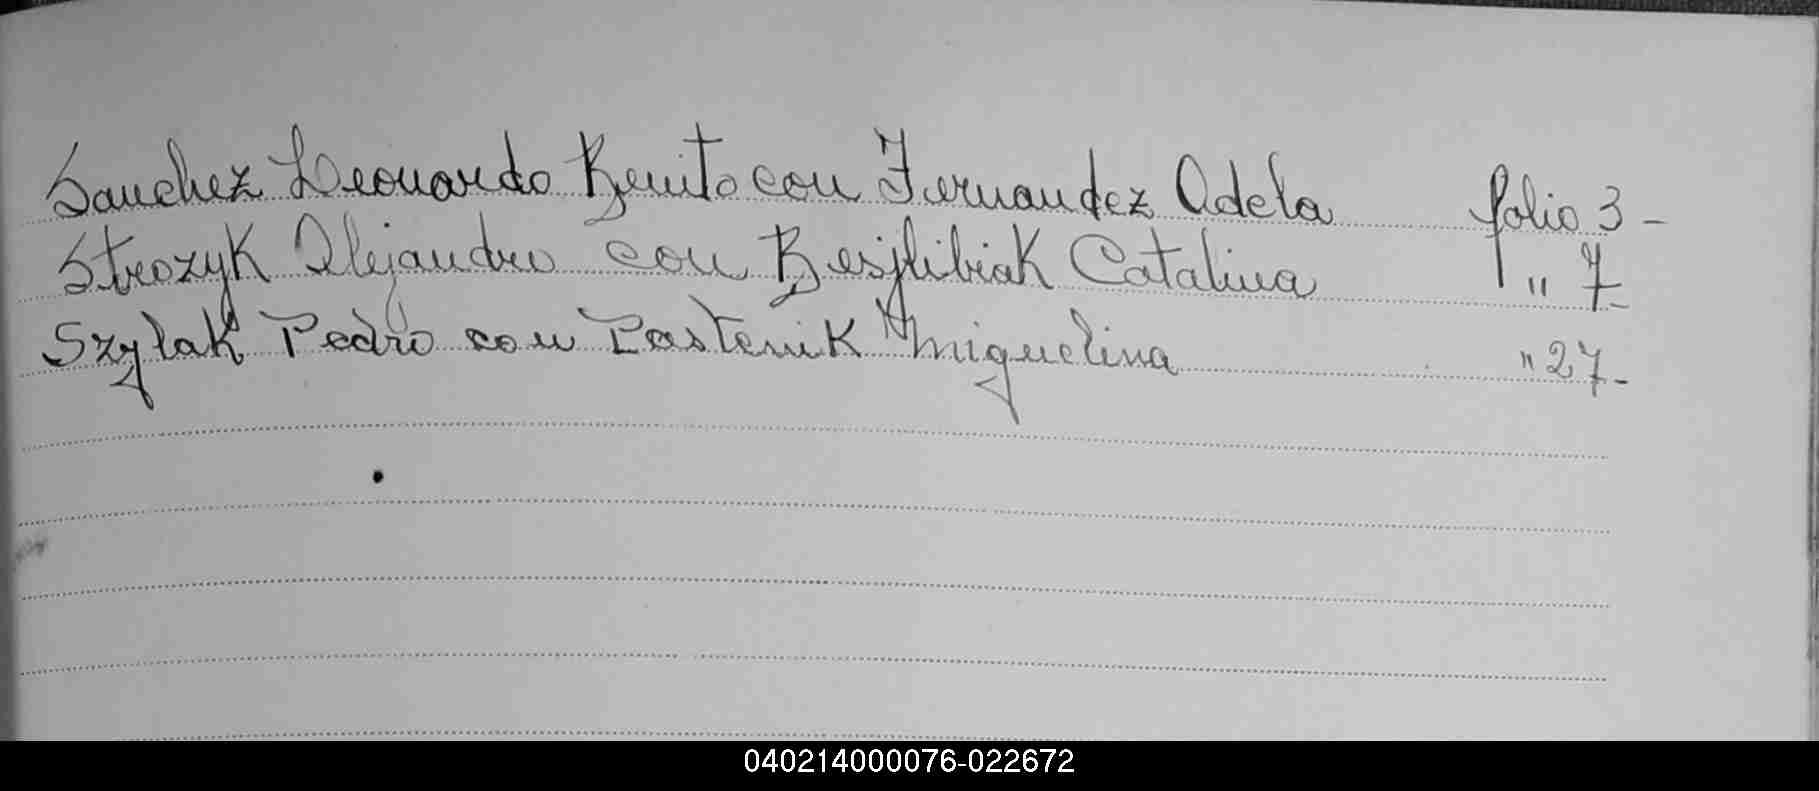 Sanchez Leonardo Benito con Fernandez Adela folio 3 -
Strozyk Alejandro con Besjlibiak Catalina " 7 -
Szylak Pedro con Pastenik Miguelina " 27 -
040214000076-022672